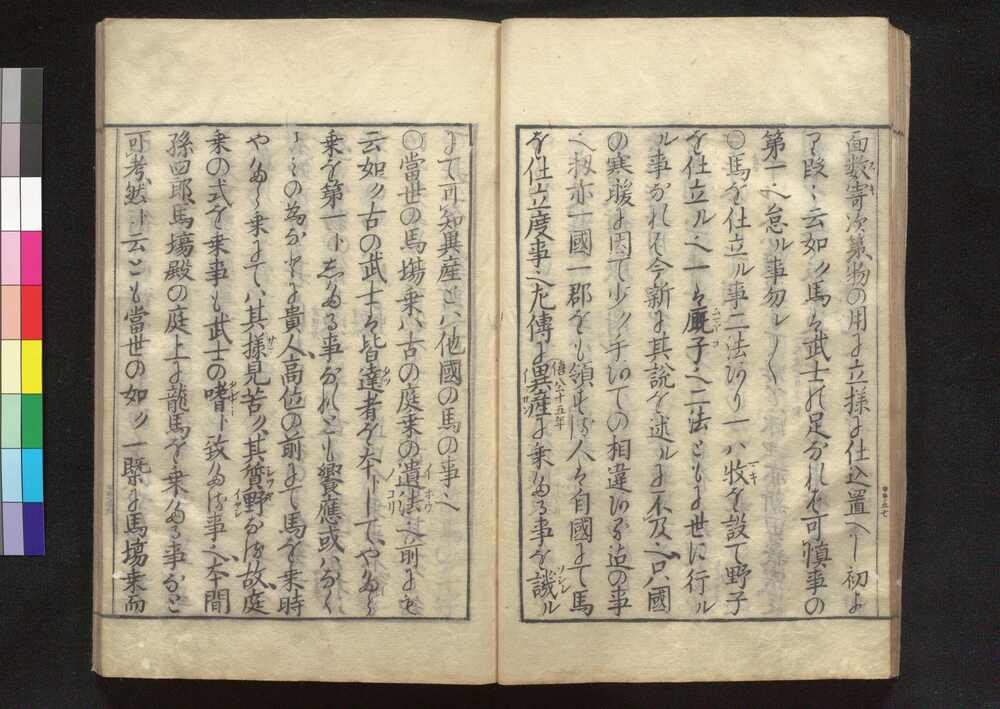 面数寄次第物の用に立様に仕込置へし初よ
り段々云如ク馬は武士の足なれは可慎事の
第一也怠ル事勿レ〱
○馬を仕立ル事二法有リ一ハ牧を設て野子
を仕立ル也一は厩子也二法ともに世に行ル
ル事なれは今新に其説を述ルに不及也只國
の寒暖に因て少ク手当ての相違有ル迄の事
也扨亦一國一郡をも領する人々は自國にて馬
を仕立度事也左傳に異産に乗たる事を譏ル
僖公十五年
にて可知異産とハ他國の馬の事也
○當世の馬場乗ハ古の庭乗の遺法也前にも
云如ク古の武士は皆達者を本トしてやたら
乗を第一トしたる事なれとも饗應或ハなく
さミの為なとに貴人高位の前にて馬を乗時
やたら乗にてハ其様見苦ク其質野なる故庭
乗の式を乗事も武士の嗜ト致たる事也本間
孫四郎馬場殿の庭上に龍馬を乗たる事なと
可考然ト云とも當世の如ク一概に馬場乗而